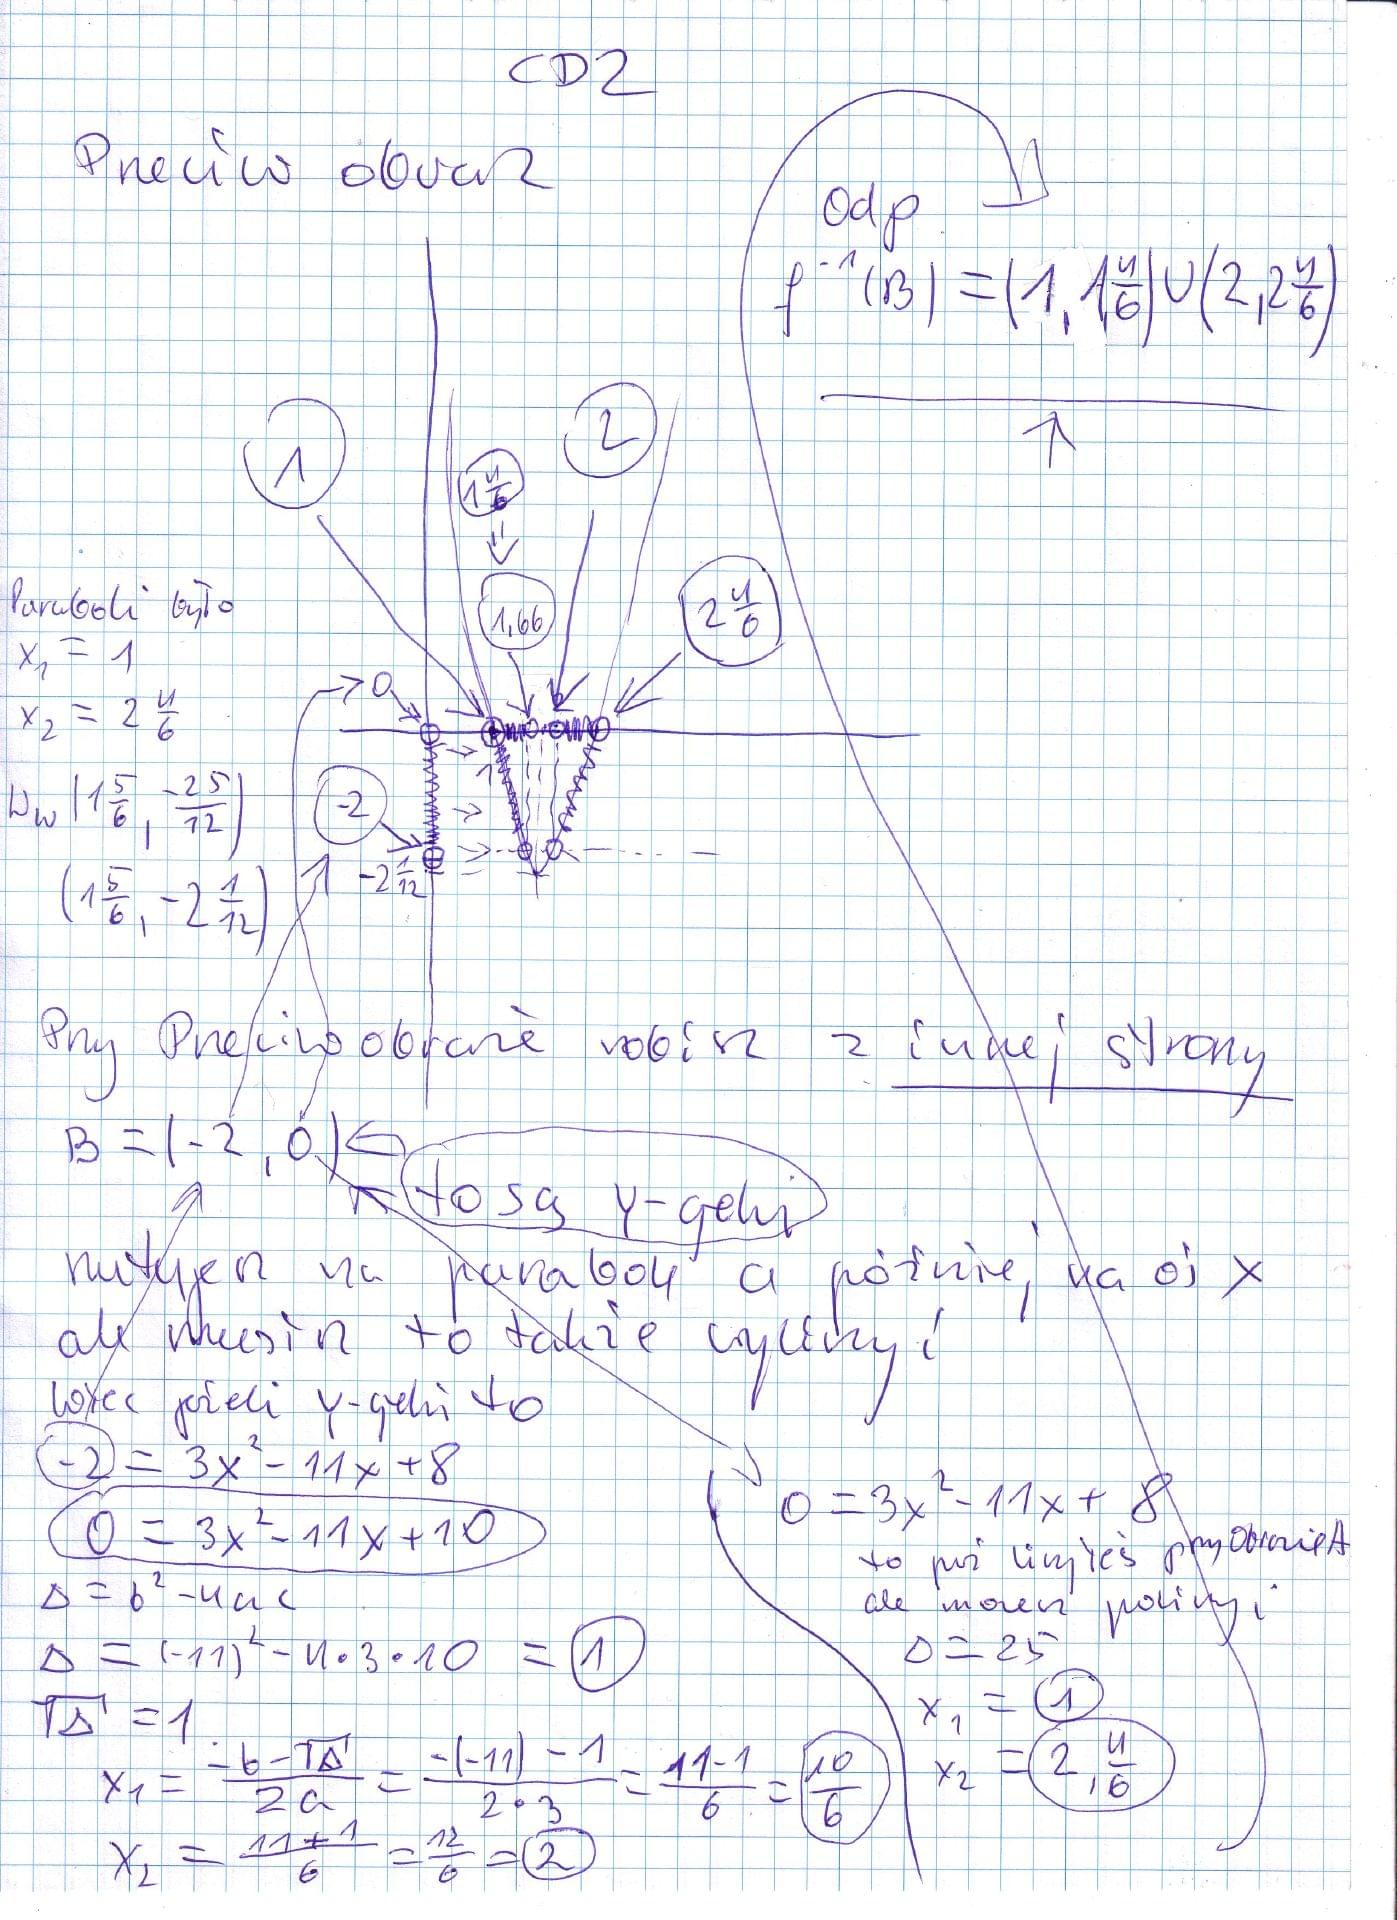 CD2
Przeciw obraz
Odp
f⁻¹(B) = (1, 1 4/6) ∪ (2, 2 4/6)
1
1 4/6
2
1,66
2 4/6
Paraboli było
x₁ = 1
x₂ = 2 4/6
0
1
Ww (1 5/6, -25/12)
-2
-2 1/12
(1 5/6, -2 1/12)
Przy Przeciwobrazie robisz z innej strony
B = (-2, 0)
to są Y-greki
rzutujesz na parabolę a później na oś X
ale musisz to także wyliczyć
więc jeżeli Y-greki to
-2 = 3x² - 11x + 8
0 = 3x² - 11x + 10
Δ = b² - 4ac
Δ = (-11)² - 4·3·10 = 1
√Δ = 1
x₁ = (-b - √Δ)/2a = (-(-11) - 1)/(2·3) = (11-1)/6 = 10/6
x₂ = (11+1)/6 = 12/6 = 2
0 = 3x² - 11x + 8
to już liczyłeś przy Obrazie A
ale możesz policzyć
Δ = 25
x₁ = 1
x₂ = 2, 4/6